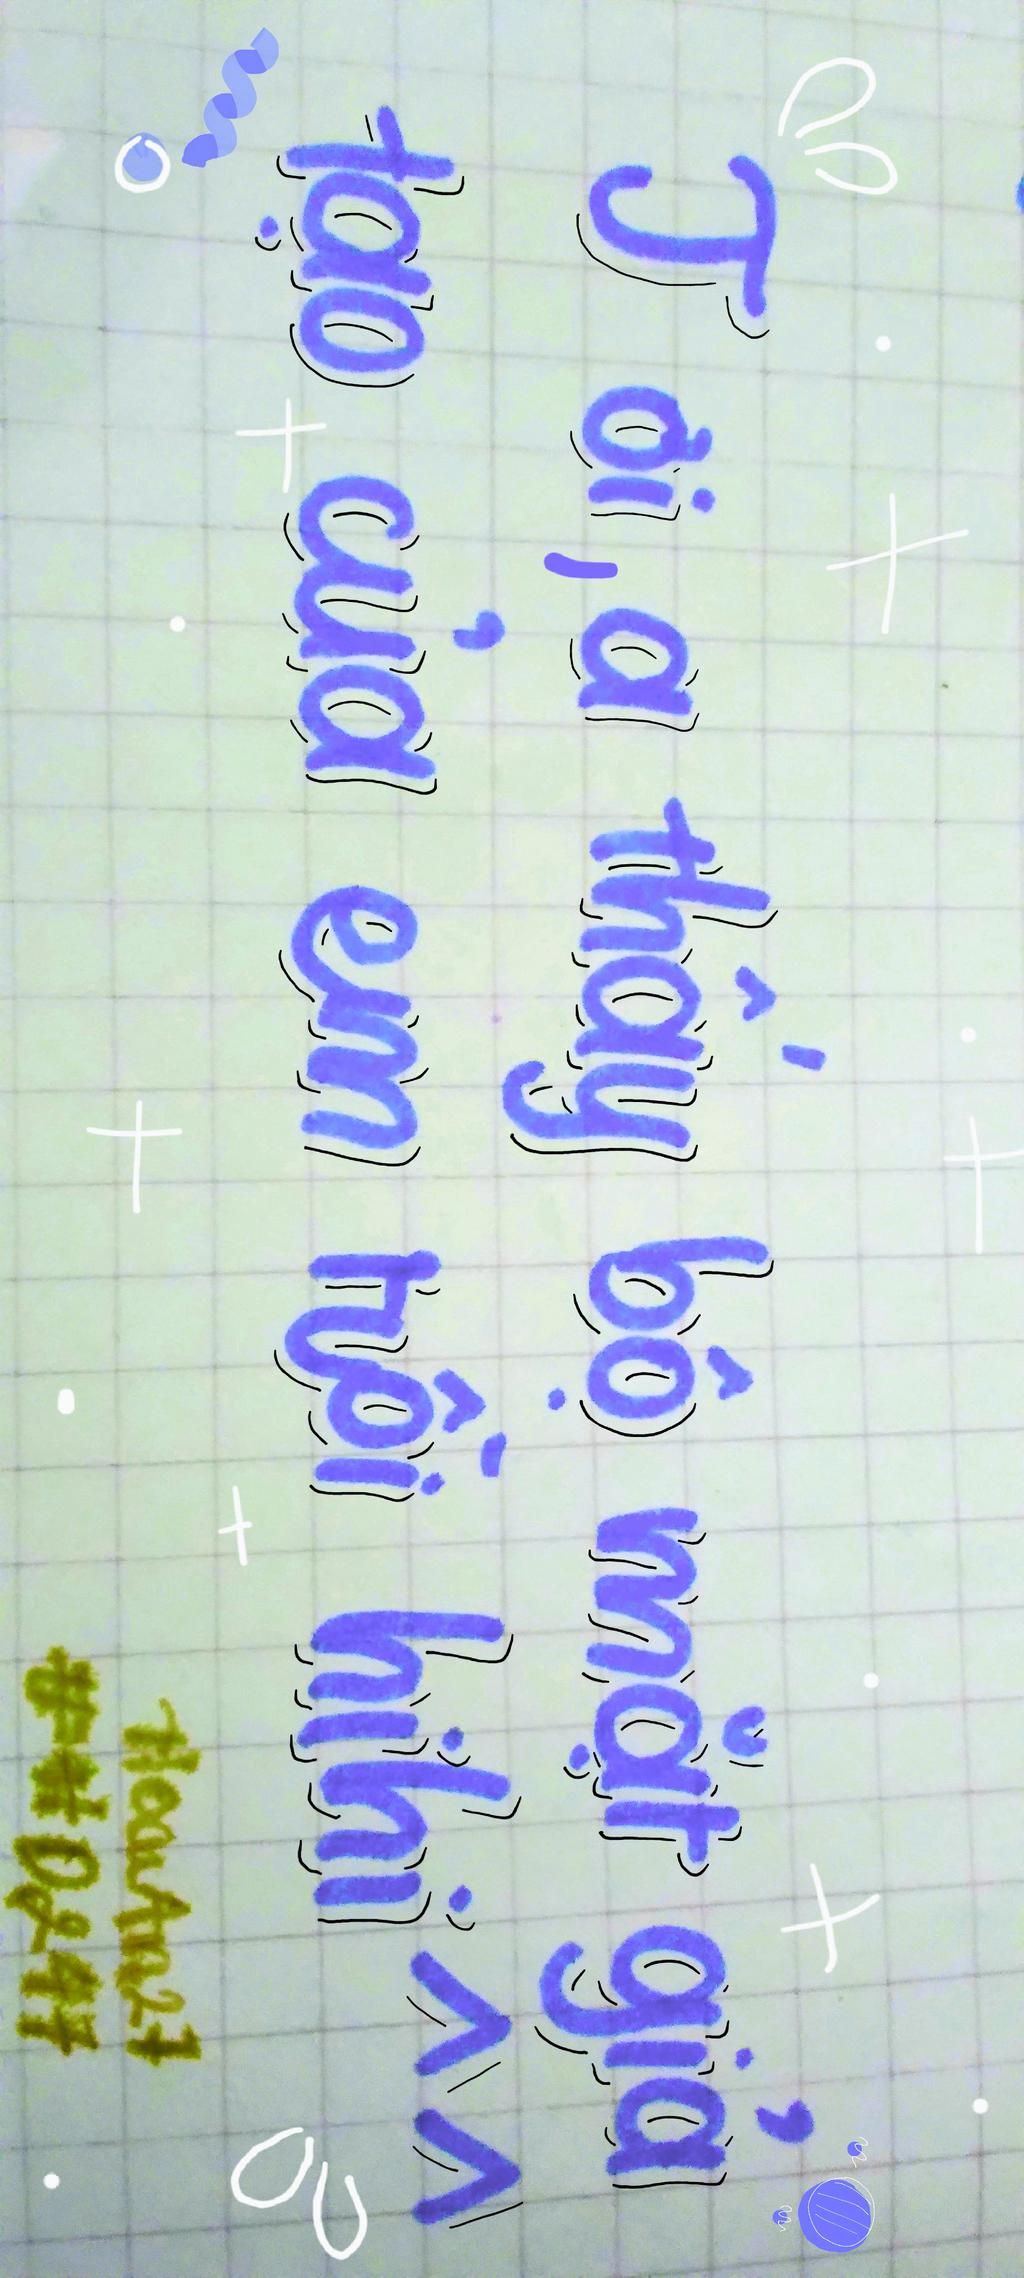 J ơi, a thấy bộ mặt giả
tạo của em rồi hihi ^^